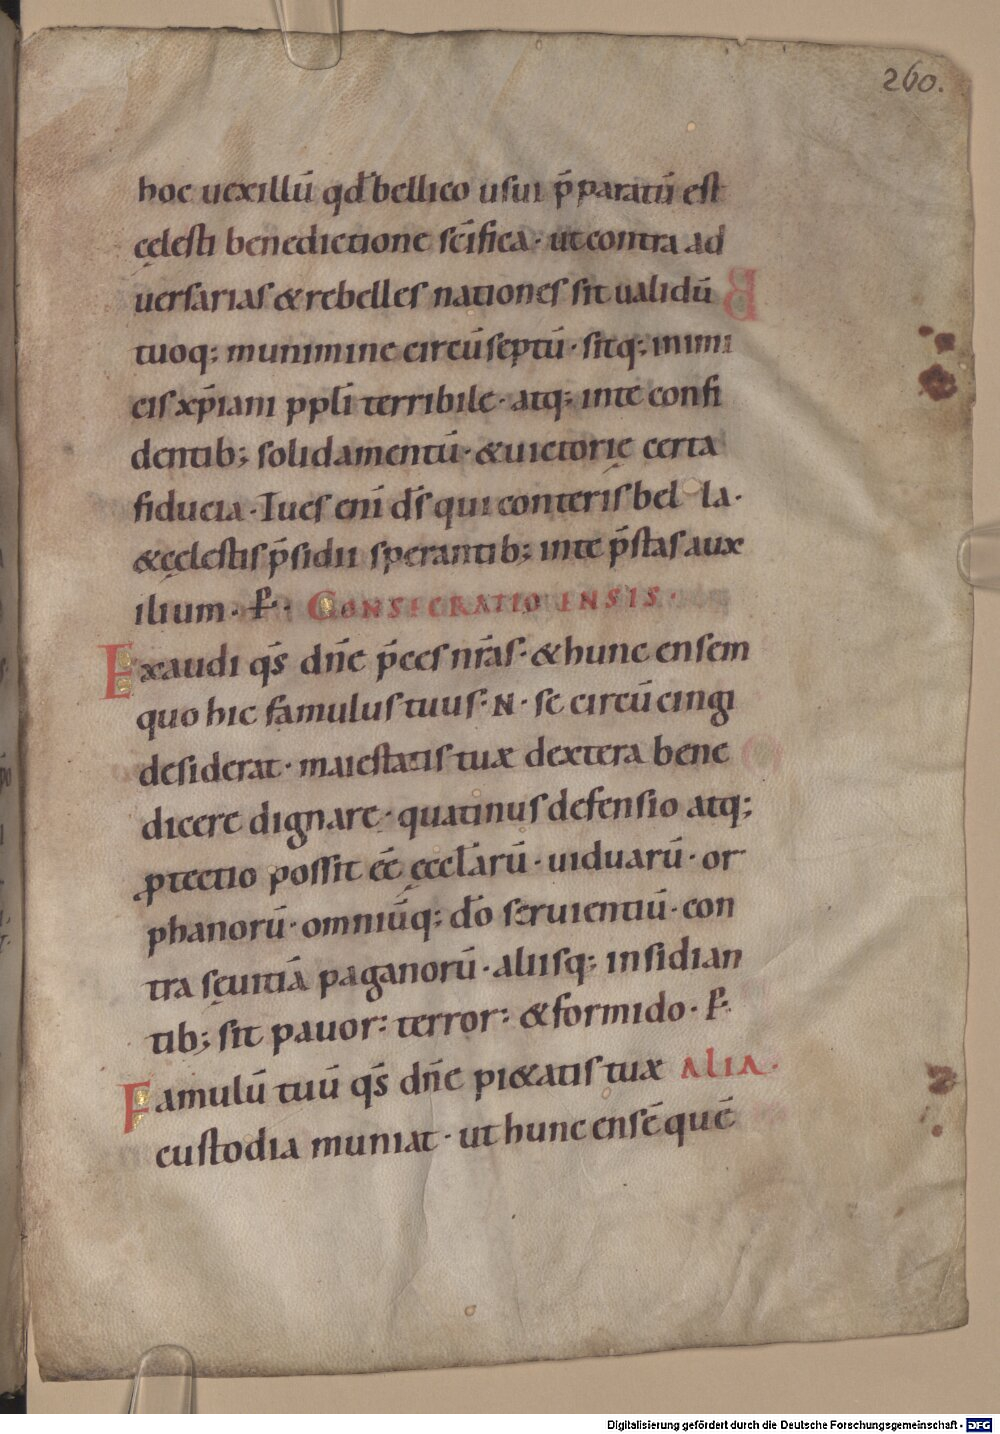 260.
hoc uexillū qđ bellico usui p̄paratū est
cęlesti benedictione sc̄ifica· ut contra ad
uersarias & rebelles nationes sit ualidū
tuoq; munimine circūseptū· sitq; inimi
cis xp̄iani ppl̄i terribile· atq; in te confi
dentib; solidamentū· & uictorię certa
fiducia· Tu es eni̅ d̄s qui conteris bel la·
& cęlestis p̄sidii sperantib; in te p̄stas aux
ilium· P̱· CONSECRATIO ENSIS·
Exaudi q̄s dn̄e p̄ces nr̄as· & hunc ensem
quo hic famulus tuus· N· se circūcingi
desiderat· maiestatis tuæ dextera bene
dicere dignare· quatinus defensio atq;
ꝓtectio possit eē ęccl̄arū· uiduarū· or
phanorū· omniūq; dō seruientiū· con
tra sęuitiā paganorū· aliisq; insidian
tib; sit pauor: terror: & formido· P̱
Famulū tuū q̄s dn̄e pi&atis tuæ ALIA·
custodia muniat· ut hunc ensē quē
Digitalisierung gefördert durch die Deutsche Forschungsgemeinschaft - DFG